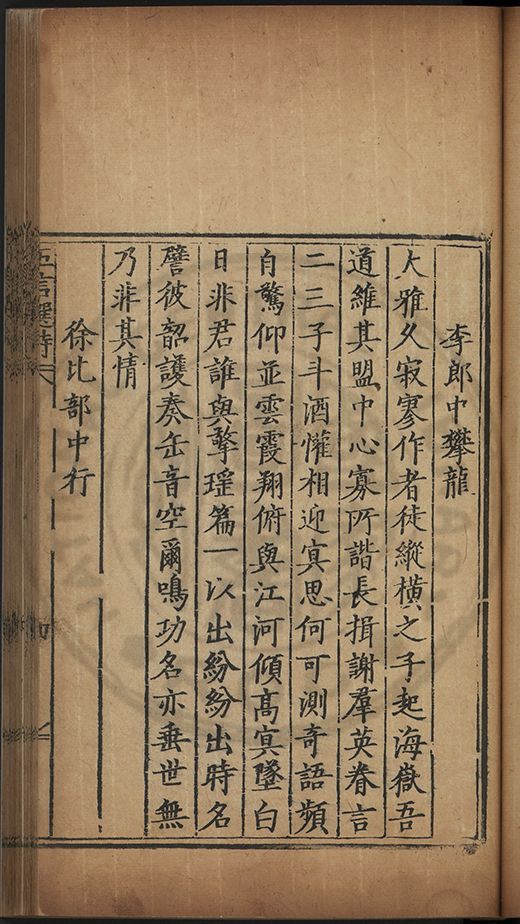 李郎中攀龍
大雅久寂寥作者徒縱橫之子起海嶽吾
道維其盟中心寡所諧長揖謝羣英眷言
二三子斗酒懽相迎冥思何可測奇語頻
自驚仰並雲霞翔俯與江河傾高冥墜白
日非君誰與擎瑶篇一以出紛紛出時名
譬彼韶頀奏缶音空爾鳴功名亦垂世無
乃非其情
徐比部中行